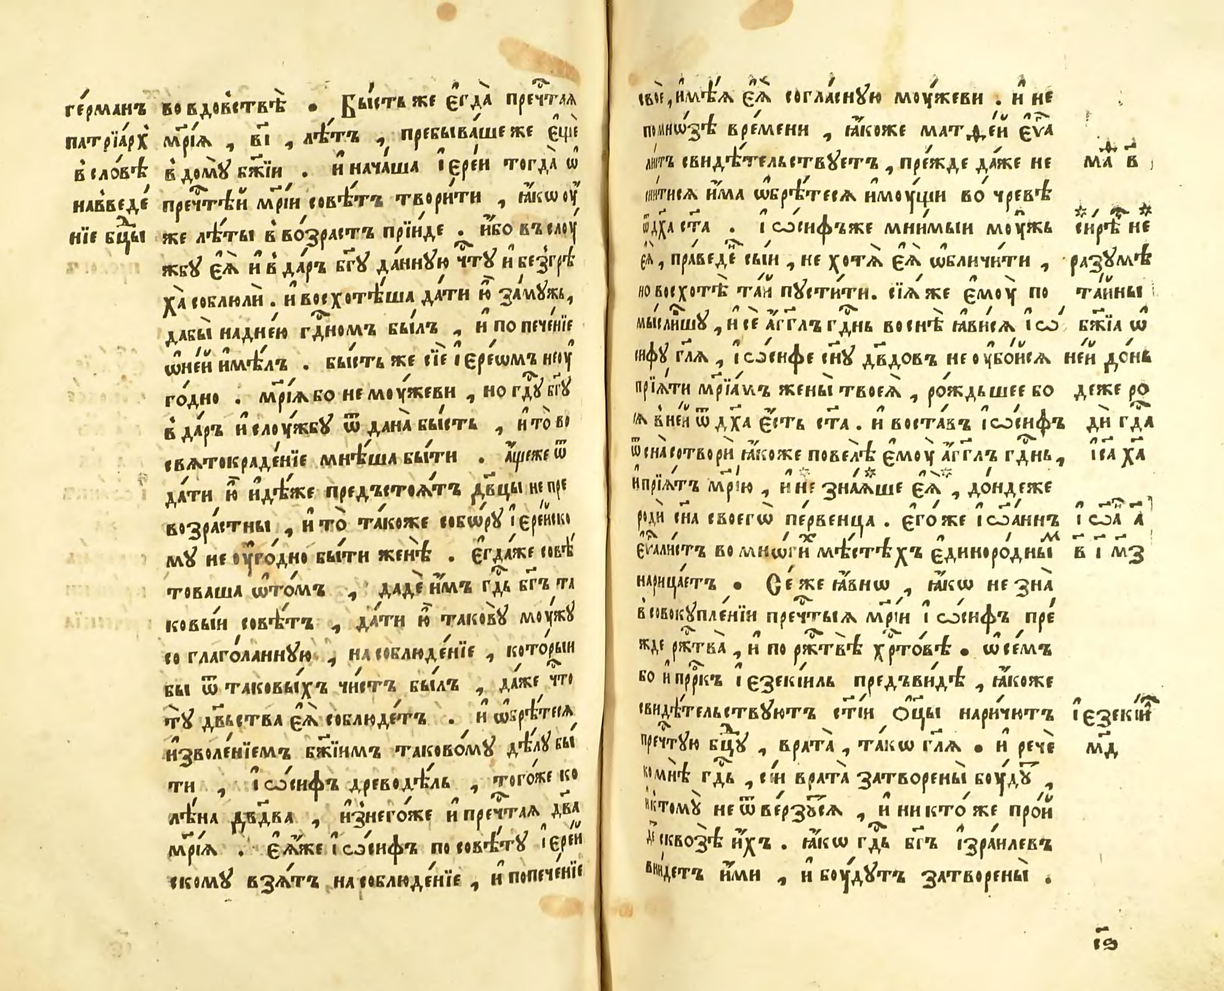 ге́рманъ
патрїа́рхъ
в сло́вѣ
на введе́
нїе бцы
во вдовствѣ . Бы́сть же є҆гда̀ пречⷭ҇таѧ
мр҃і́ѧ , в҃і , лѣ́тъ , пребыва́ше же є҆щѐ
в дому̀ бж҃їи . и҆ нача́ша і҆ере́и тогда̀ ѡ҆
пречⷭ҇тѣй мр҃і́и совѣ́тъ твори́ти , ꙗ҆́кѡ оу҆
же лѣ́ты в во́зрастъ прїи́де . и҆́бо въ слоу́
жбу є҆ѧ̀ и҆ в да́ръ бг҃у да́нную чⷭ҇ту̀ и҆ безгрѣ
ха̀ соблюли̂ . и҆ восхотѣ́ша да́ти ю҆̀ за́мужъ,
дабы̀ над не́ю гдⷭ҇номъ бы́лъ , и҆ попече́нїе
ѡ҆ не́й и҆мѣ́лъ . бы́сть же сїѐ і҆ере́ѡмъ неоу
го́дно . мр҃і́ѧ бо не моу́жеви , но гдⷭ҇у бг҃у
в да́ръ и҆ слоу́жбу ѿдана̀ бы́сть , и҆ то̀ во
свѧтокраде́нїе мнѣ́ша бы́ти . а҆́ще же ѿ
да́ти ю҆̀ и҆дѣ́же предъстоѧ́тъ дв҃цы не пре
во́зрастны , и҆ то̀ та́коже собо́ру і҆ере́йско
му не оу҆го́дно бы́ти же́нѣ . є҆гда́же совѣ
това́ша ѡ҆ то́мъ , даде́ и҆̀мъ гдⷭ҇ь бг҃ъ та
ковы́и совѣ́тъ , да́ти ю҆̀ такову̀ моу́жу
со глаго́ланную , на соблюде́нїе , кото́рыи
бы ѿ таковы́хъ чи́стъ бы́лъ , да́же чⷭ҇то
ту̀ дв҃ьства є҆ѧ̀ соблюде́тъ . и҆ ѡ҆брѣ́тесѧ
и҆зволе́нїемъ бж҃їимъ таково́му дѣ́лу бы́
ти , і҆ѡ́сифъ древодѣ́ль , того́же ко
лѣ́на дв҃два , и҆з него́же и҆ пречⷭ҇таѧ дв҃а
мр҃і́ѧ . є҆ѧ́же і҆ѡ́сифъ по совѣ́ту і҆ере́й
скому взѧ́тъ на соблюде́нїе , и҆ попече́нїе
своѐ, и҆мѣ́ѧ є҆ѧ̀ согла́сную моу́жеви . и҆ не
по мно́зѣ вре́мени , ꙗ҆́коже матѳе́й є҆ѵⷢ҇а
ли́стъ свидѣ́тельствуетъ , пре́жде да́же не
сни́тисѧ и҆́ма ѡ҆брѣ́тесѧ и҆моу́щи во чре́вѣ
ѿ дх҃а ст҃а . і҆ѡ́сифъ же мни́мыи моу́жъ
є҆ѧ̀ , пра́веде́ сы́и , не хотѧ̀ є҆ѧ̀ ѡ҆бличи́ти ,
но восхотѣ̀ та́й пусти́ти . сїѧ́ же є҆моу̀ по
мы́слившу , и҆ сѐ а҆́гг҃лъ гдⷭ҇нь во снѣ̀ ꙗ҆ви́сѧ і҆ѡ́
сифу гл҃ѧ , і҆ѡ́сифе сн҃у дв҃довъ не оу҆бо́йсѧ
прїѧ́ти мр҃іа́мъ жены̀ твоеѧ̀ , ро́ждьшее бо
сѧ в не́й ѿ дх҃а є҆́сть ст҃а . и҆ воста́въ і҆ѡ́сифъ
ѿ сна̀ сотвори̂ ꙗ҆́коже повелѣ̀ є҆моу̀ а҆́гг҃лъ гдⷭ҇нь,
и҆ прїѧ́тъ мр҃ію , и҆ не зна́ѧше є҆ѧ̀ , до́ндеже
роди̂ сн҃а своего̀ пе́рвенца . є҆го́же і҆ѡа́ннъ
є҆ѵⷢ҇али́стъ во мно́гихъ мѣ́стѣхъ є҆диноро́дныⷨ
нарица́етъ . Се́ же ꙗ҆́внѡ , ꙗ҆́кѡ не зна̀
в совокупле́нїи пречⷭ҇тыѧ мр҃і́и і҆ѡ́сифъ пре́
жде ржⷭ҇тва̀ , и҆ по ржⷭ҇твѣ̀ хрⷭ҇то́вѣ . ѡ҆ се́мъ
бо и҆ прⷪ҇ро́къ і҆езекі́иль предъви́дѣ , ꙗ҆́коже
свидѣ́тельствуютъ ст҃і́и Ѻ҆тцы̀ нарича́тъ
пречⷭ҇тую бц҃у , врата̀ , та́кѡ гл҃ѧ . и҆ речѐ
ко мнѣ̀ гдⷭ҇ь , сїѝ врата̀ затворены̀ боу́ду ,
и҆ ктому̀ не ѿве́рзутсѧ , и҆ никто́же про́й
де сквозѣ̀ и҆́хъ . ꙗ҆́кѡ гдⷭ҇ь бг҃ъ і҆зра́илевъ
вни́детъ и҆́ми , и҆ боу́дутъ затворены̀ .
маѳ в҃
си́рѣ не
разумѣ
та́йны
бж҃їа ѡ
не́й до́нь
деже ро
ди̂ гдⷭ҇а
і҆с҃а хⷭ҇а
і҆ѡа́ а҃
в҃ і҃ м҃з
і҆езекі́и
м҃д